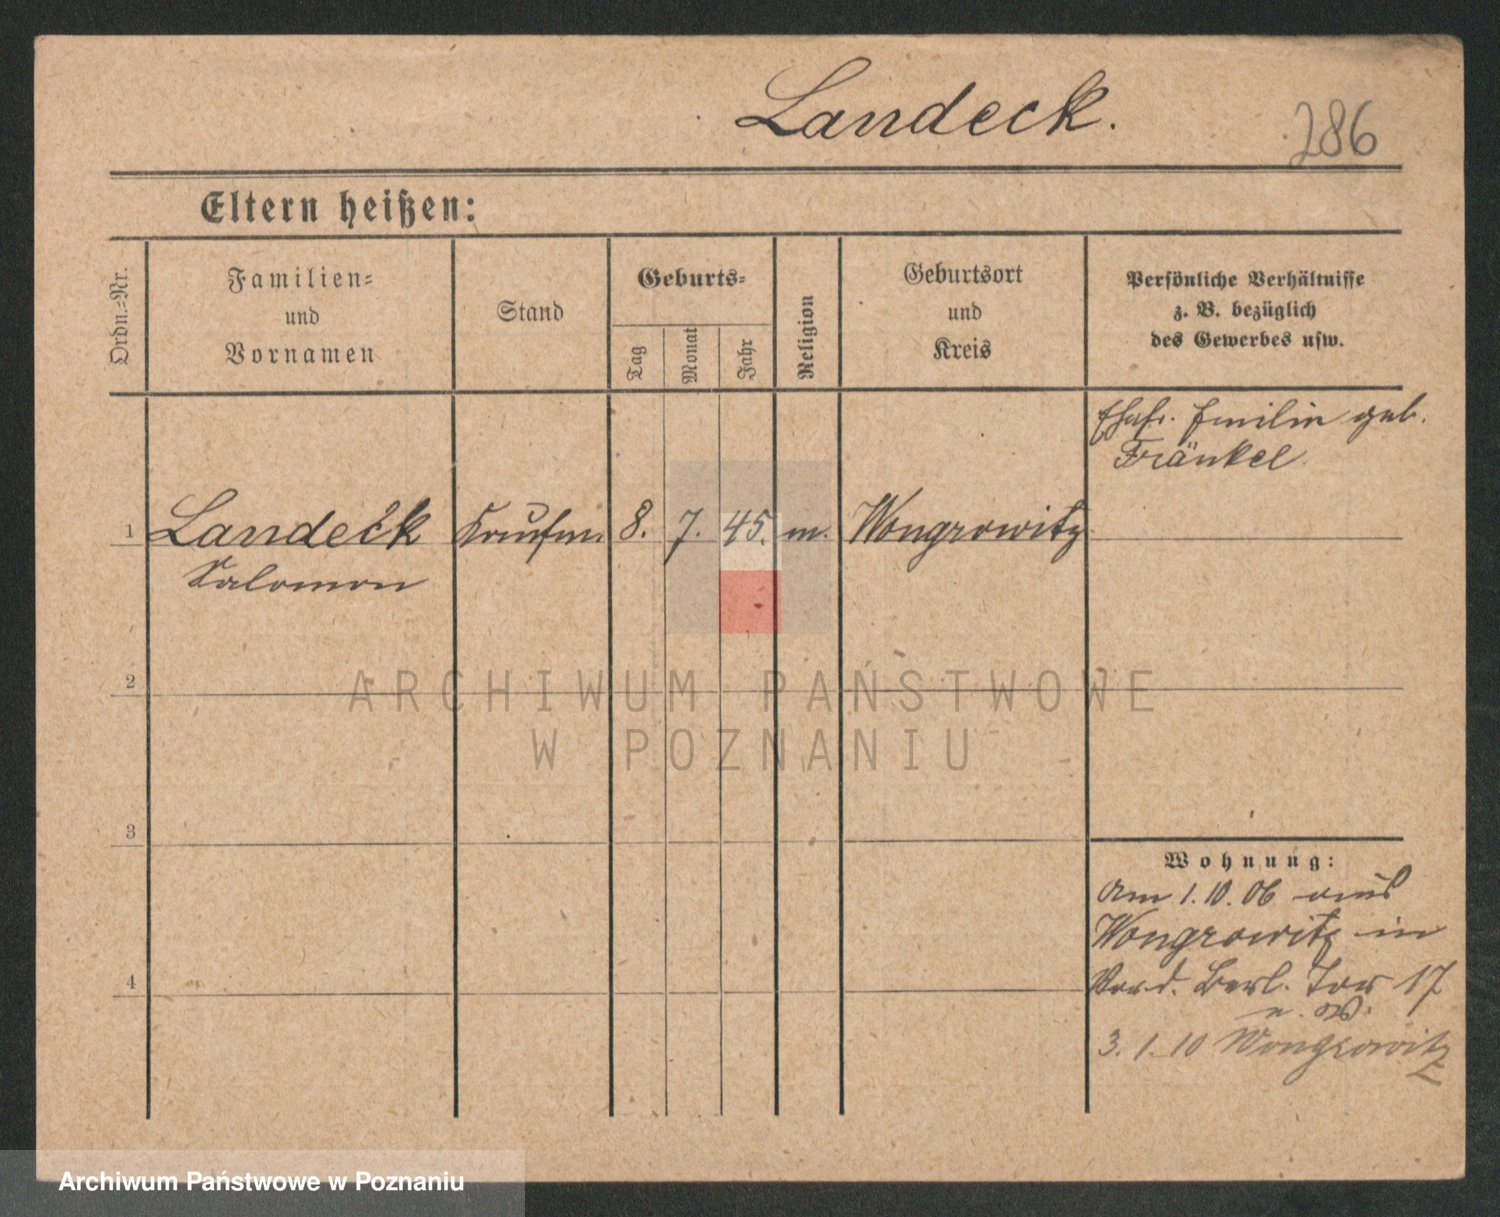 Landeck.
286
Eltern heißen:
Ordn.=Nr.
Familien=
und
Vornamen
Stand
Geburts=
Tag
Monat
Jahr
Religion
Geburtsort
und
Kreis
Persönliche Verhältnisse
z. B. bezüglich
des Gewerbes usw.
Ehefr. Emilie geb.
Fränkel
1 Landeck Kaufm. 8. 7. 45. m. Wongrowitz
Salomon
2
ARCHIWUM PAŃSTWOWE
W POZNANIU
3
Wohnung:
Am 1.10.06 aus
Wongrowitz in
4
Berl. Tor 17
3. 1. 10 Wongrowitz
Archiwum Państwowe w Poznaniu